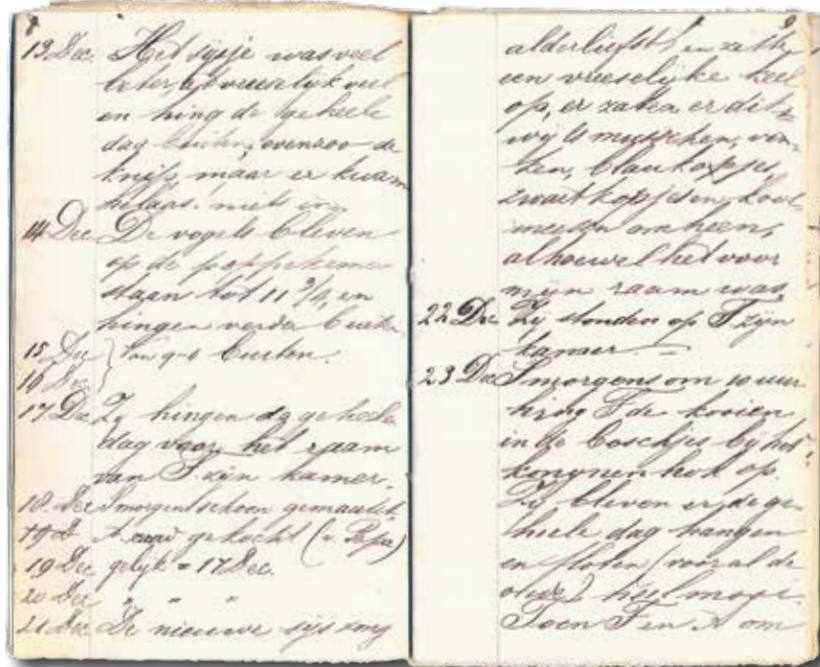 8
13 Dec. Het sijsje was veel
beter, at vreeselijk veel
en hing de geheele
dag buiten, evenzoo de
knip, maar er kwam
helaas! niets in.
14 Dec De vogels bleven
op de poppekamer
staan tot 11 3/4, en
hingen verder buiten
15 Dec } Van 9-6 buiten.
16 Dec }
17 Dec Zy hingen de geheelen
dag voor het raam
van F. zijn kamer.
18. Dec Smorgens schoon gemaakt.
A. gekocht (v. Papa)
19 Dec gelijk = 17 Dec.
20 Dec " " "
21 Dec De nieuwe sijs zong
9
alderliefst en zette
een vreeselijke keel
op, er zaten er dit-
wijls musschen, von-
ken, blaukopjes,
zwartkopjes en kool-
meezen omheen,
alhoewel het voor
mijn raam was.
22 Dec Zij stonden op F zijn
kamer. —
23 Dec Smorgens om 10 uur
hing F de kooien
in de boschjes bij het
konynen hok op.
Zij bleven er de ge-
heele dag hangen
en floten (vooral de
) heel mooi.
Toen F en A om